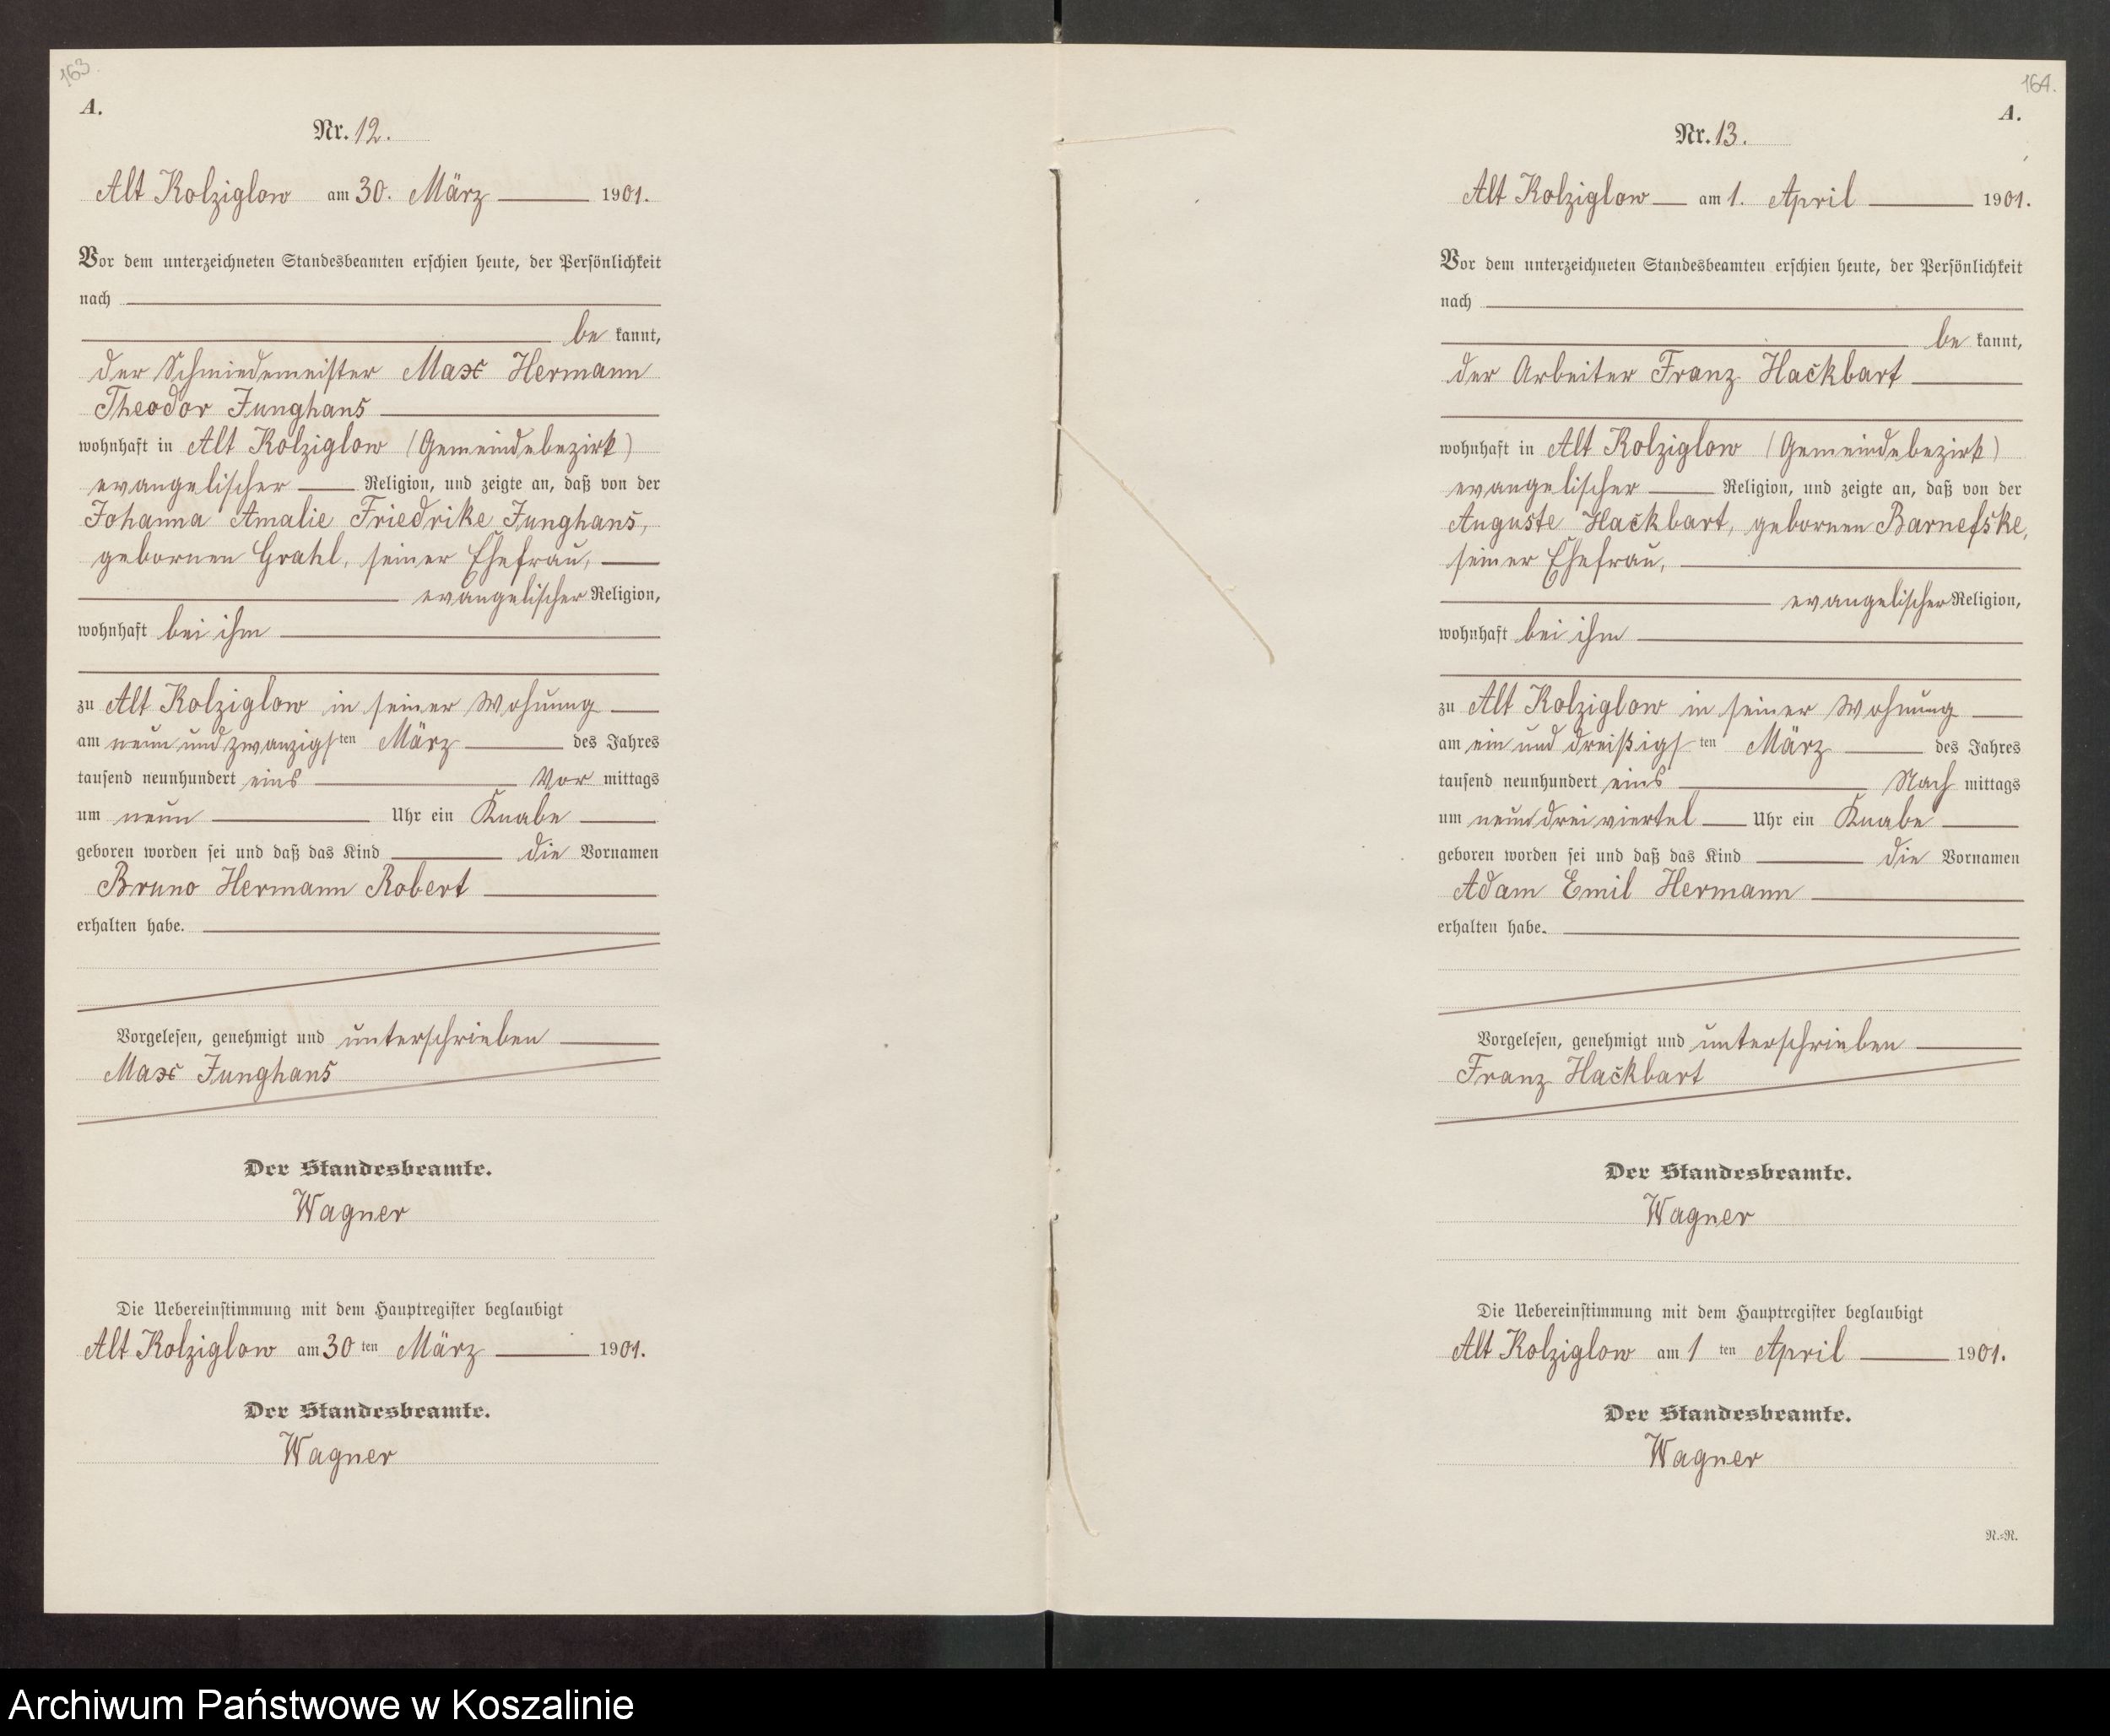 163.
A.
Nr. 12.
Alt Kolziglow am 30. März 1901.
Vor dem unterzeichneten Standesbeamten erschien heute, der Persönlichkeit
nach
be kannt,
der Schmiedemeister Max Hermann
Theodor Junghans
wohnhaft in Alt Kolziglow (Gemeindebezirk)
evangelischer Religion, und zeigte an, daß von der
Johanna Amalie Friedrike Junghans,
gebornen Grahl, seiner Ehefrau,
evangelischer Religion,
wohnhaft bei ihm
zu Alt Kolziglow in seiner Wohnung
am neun und zwanzigsten März des Jahres
tausend neunhundert eins Vor mittags
um neun Uhr ein Knabe
geboren worden sei und daß das Kind die Vornamen
Bruno Hermann Robert
erhalten habe.
Vorgelesen, genehmigt und unterschrieben
Max Junghans
Der Standesbeamte.
Wagner
Die Uebereinstimmung mit dem Hauptregister beglaubigt
Alt Kolziglow am 30 ten März 1901.
Der Standesbeamte.
Wagner
164.
A.
Nr. 13.
Alt Kolziglow am 1. April 1901.
Vor dem unterzeichneten Standesbeamten erschien heute, der Persönlichkeit
nach
be kannt,
der Arbeiter Franz Hackbart
wohnhaft in Alt Kolziglow (Gemeindebezirk)
evangelischer Religion, und zeigte an, daß von der
Auguste Hackbart, gebornen Barnefske,
seiner Ehefrau,
evangelischer Religion,
wohnhaft bei ihm
zu Alt Kolziglow in seiner Wohnung
am ein und dreißigsten März des Jahres
tausend neunhundert eins Nach mittags
um neun drei viertel Uhr ein Knabe
geboren worden sei und daß das Kind die Vornamen
Adam Emil Hermann
erhalten habe.
Vorgelesen, genehmigt und unterschrieben
Franz Hackbart
Der Standesbeamte.
Wagner
Die Uebereinstimmung mit dem Hauptregister beglaubigt
Alt Kolziglow am 1 ten April 1901.
Der Standesbeamte.
Wagner
N.=R.
Archiwum Państwowe w Koszalinie